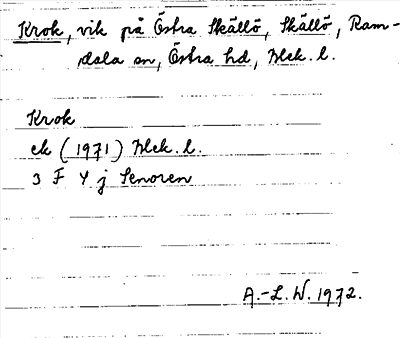 Krok, vik på Östra Skällö, Skällö, Ram-
dala sn, Östra hd, Blek. l.
Krok
ek (1971) Blek. l.
3 F 4 j Senoren
A.-L. W. 1972.